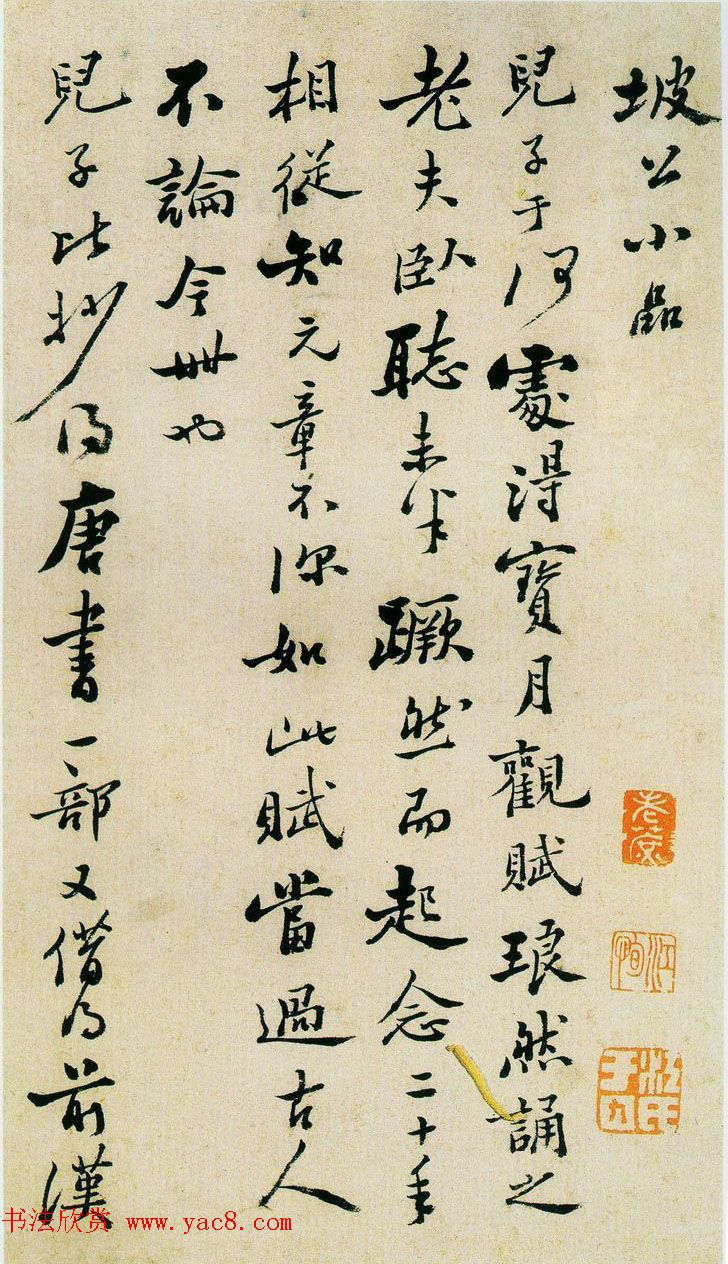 坡公小品
兒子于何處得寶月觀賦琅然誦之
老夫臥聽未半蹶然而起念二十年
相從知元章不深如此賦當過古人
不論今世也
兒子比抄得唐書一部又借得前漢
书法欣赏 www.yac8.com